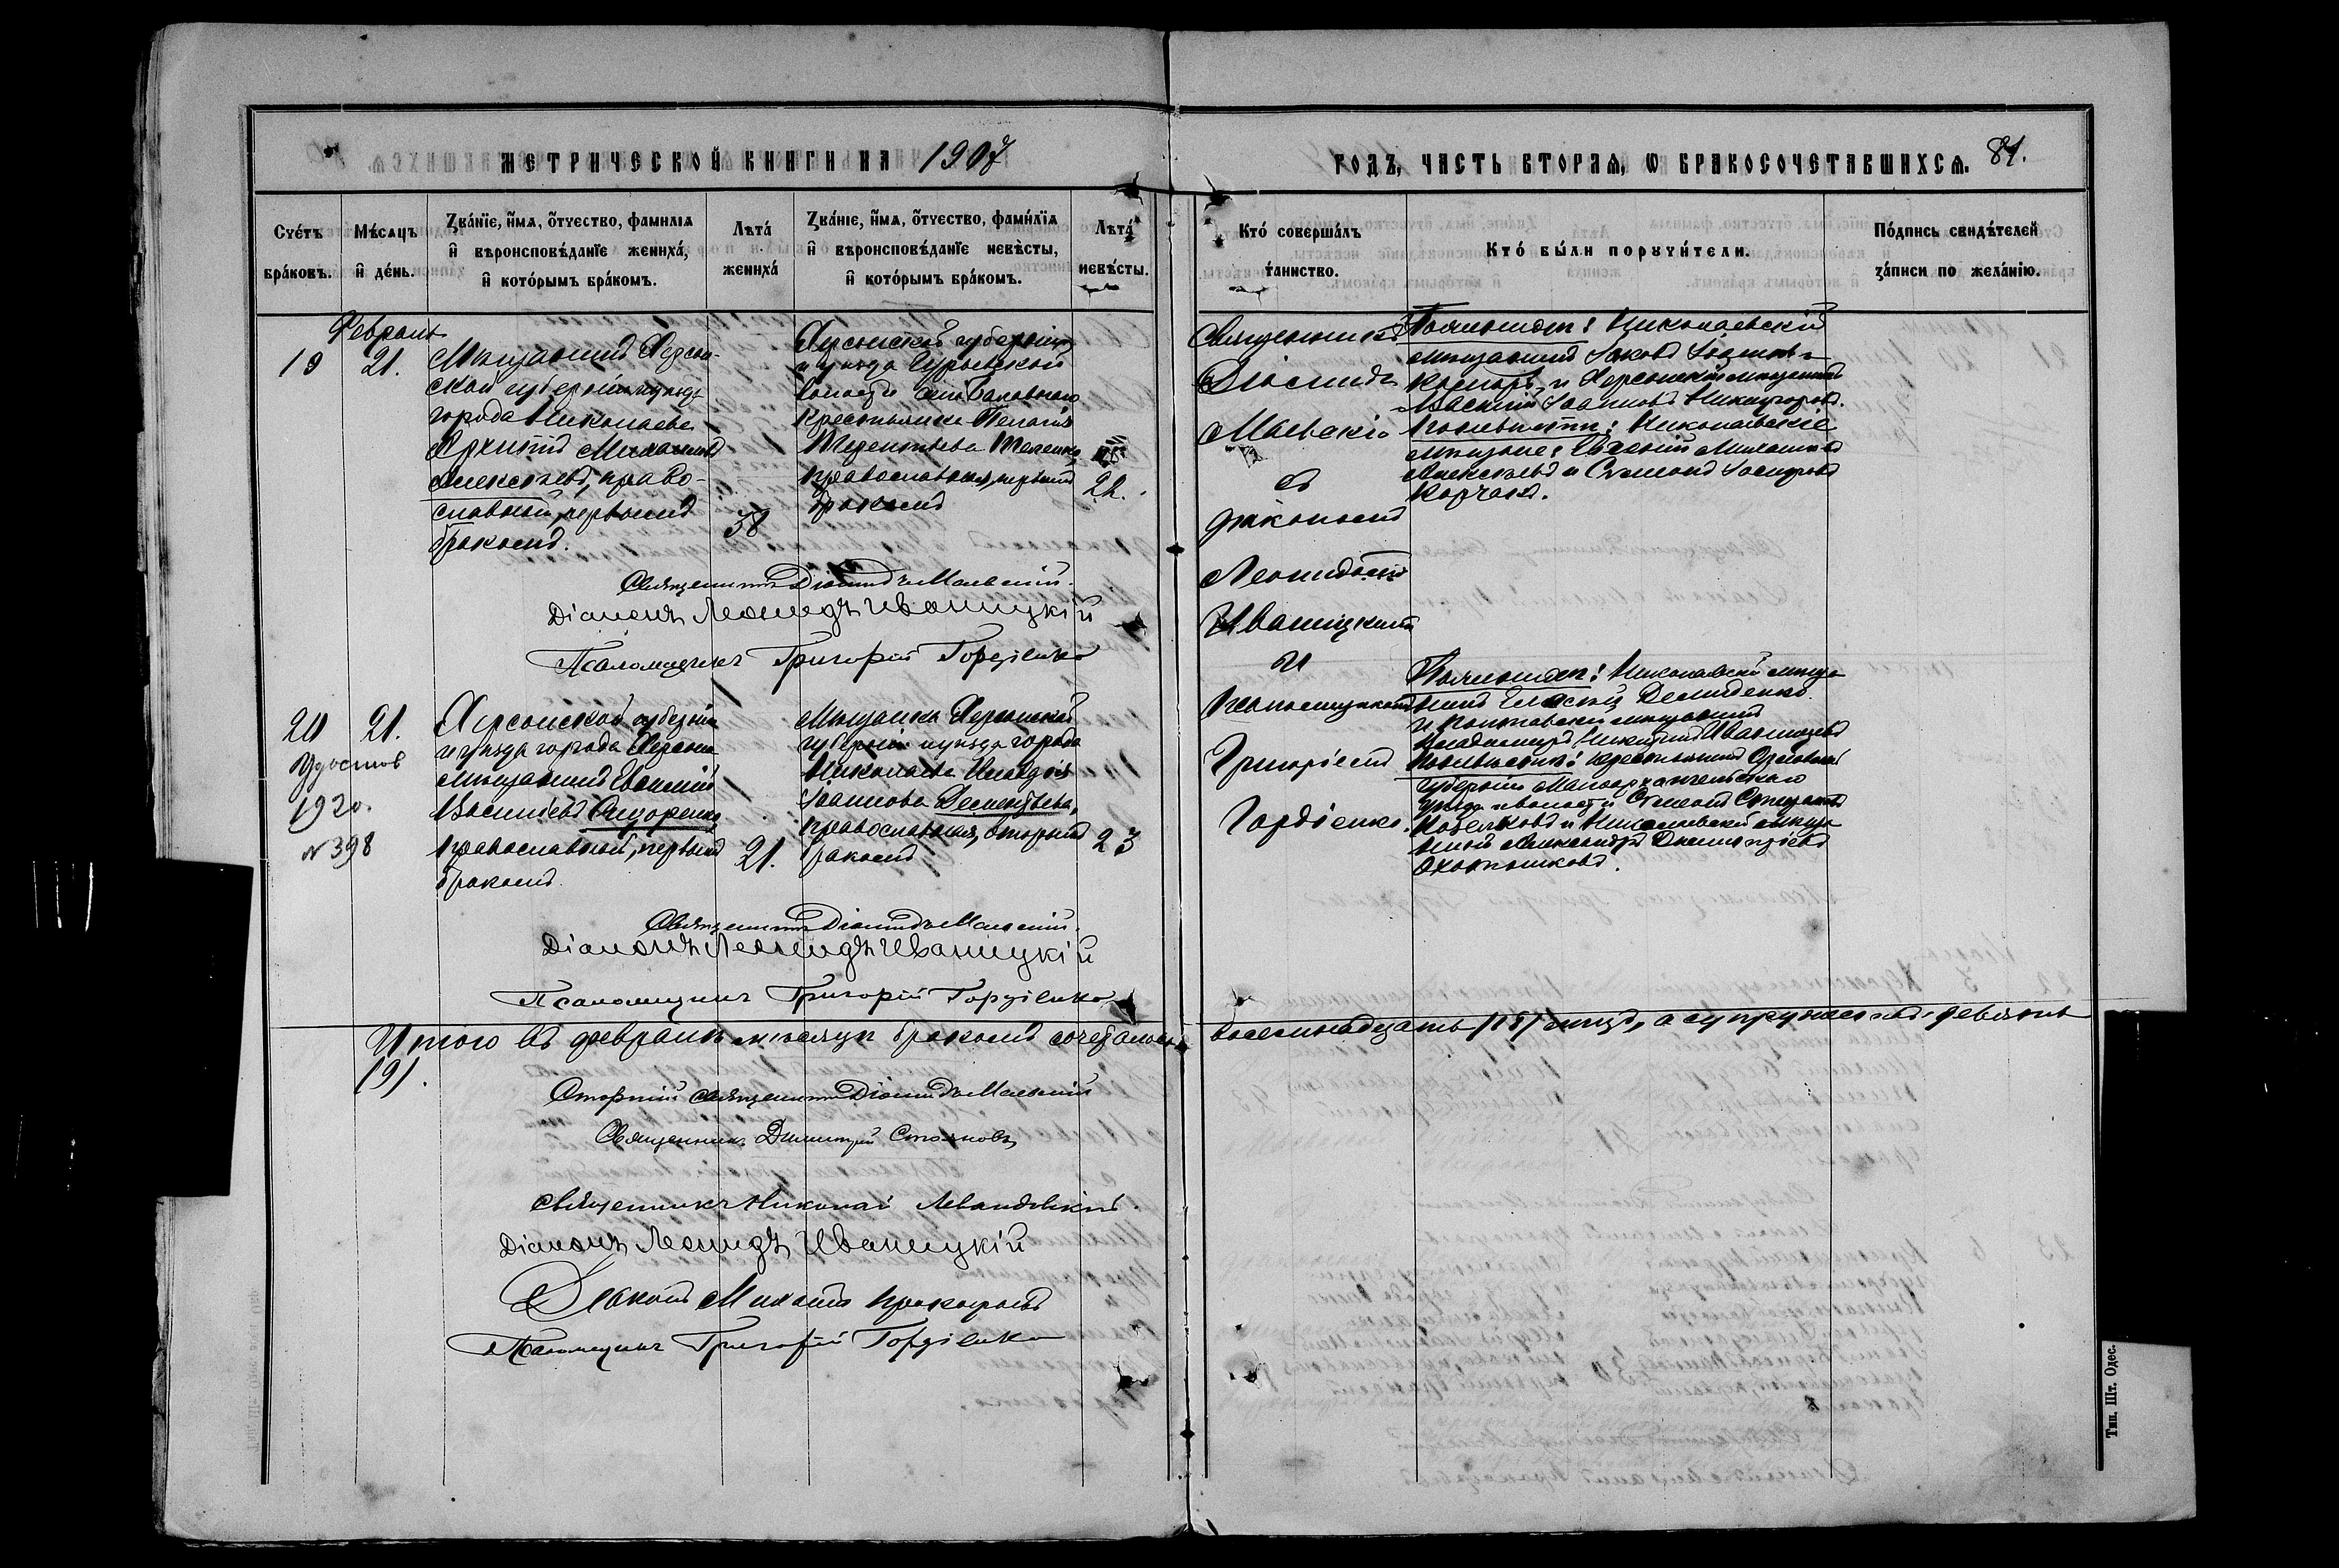 МЕТРИЧЕСКОЙ КНИГИ НА 1907
ГОДЪ, ЧАСТЬ ВТОРАЯ, Ѡ БРАКОСОЧЕТАВШИХСЯ. 81.
Счéтъ бráковъ.
Мѣ́сяцъ и҆ дéнь.
Звáнїе, и҆́мя, ѻ҆́тчество, фамилія
и҆ вѣроисповѣ́данїе женихá,
и҆ котóрымъ брáкомъ.
Лѣтá
женихá
Звáніе, и҆́мя, ѻ҆́тчество, фами́лїя
и҆ вѣроисповѣ́данїе невѣ́сты,
и҆ котóрымъ брáкомъ.
Лѣтá
невѣ́сты.
Ктó совершáлъ
тáинство.
Ктó бы́ли поручи́тели.
Пóдпись свидѣ́телей
зáписи по желáнію.
Февраль
19
21.
Мѣщанинъ Херсон-
ской губерніи и уѣзда
города Николаева
Архипъ Михаиловъ
Алексѣевъ, право-
славный, первымъ
бракомъ.
38
Херсонской губерніи
и уѣзда
волости села Баловнаго
крестьянка Пелагія
Терентьева
православная, первымъ
бракомъ
22.
Священникъ
Діомидъ
Маевскій
съ
діакономъ
Леонидомъ
Иваницкимъ
и
псаломщикомъ
Григоріемъ
Гордіенко.
По женихѣ: Николаевскій
мѣщанинъ Іаковъ Іоанновъ
и Херсонскій мѣщанинъ
Василій Іоанновъ Никифоровъ.
По невѣстѣ: Николаевскіе
мѣщане: Евгеній Михаиловъ
Алексѣевъ и Симеонъ
Корчакъ.
Священникъ Діомидъ Маевскій.
Діаконъ Леонидъ Иваницкій
Псаломщикъ Григорій Гордіенко
20
21.
Удостов
1920.
№ 398
Херсонской губерніи
и уѣзда города Херсона
мѣщанинъ Евгеній
Васильевъ Сидоренко
православный, первымъ
бракомъ
21.
Мѣщанка Херсонской
губерніи и уѣзда города
Николаева
Іоаннова Дементьева,
православная, вторымъ
бракомъ
23
По женихѣ: Николаевскій мѣща-
нинъ Демиденко
и Полтавскій мѣщанинъ
Владимиръ Никитинъ
По невѣстѣ: крестьянинъ Орловской
губерніи Малоархангельскаго
уѣзда и волости Симеонъ Стефановъ
и Николаевскій мѣща-
нинъ Александръ Димитріевъ
Охотниковъ.
Священникъ Діомидъ Маевскій.
Діаконъ Леонидъ Иваницкій
Псаломщикъ Григорій Гордіенко
Итого въ февралѣ мѣсяцѣ бракомъ сочеталось восемнадцать /18/ лицъ, а супружествъ девять
/9/.
Старшій священникъ Діомидъ Маевскій
Священникъ Димитрій Стояновъ
Священникъ Николай Левандовскій.
Діаконъ Леонидъ Иваницкій
Діаконъ Михаилъ Прокофьевъ
Псаломщикъ Григорій Гордіенко
Тип. Шт. Одес.